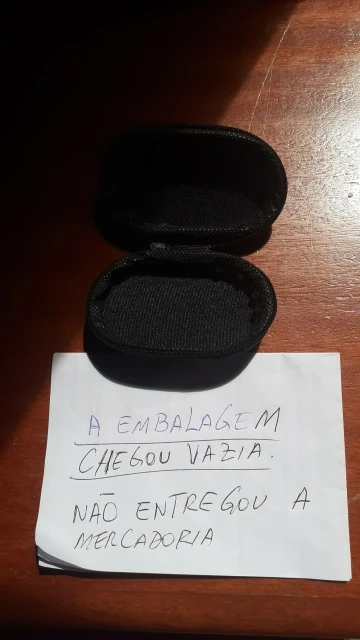 A EMBALAGEM
CHEGOU VAZIA.
NÃO ENTREGOU A
MERCADORIA